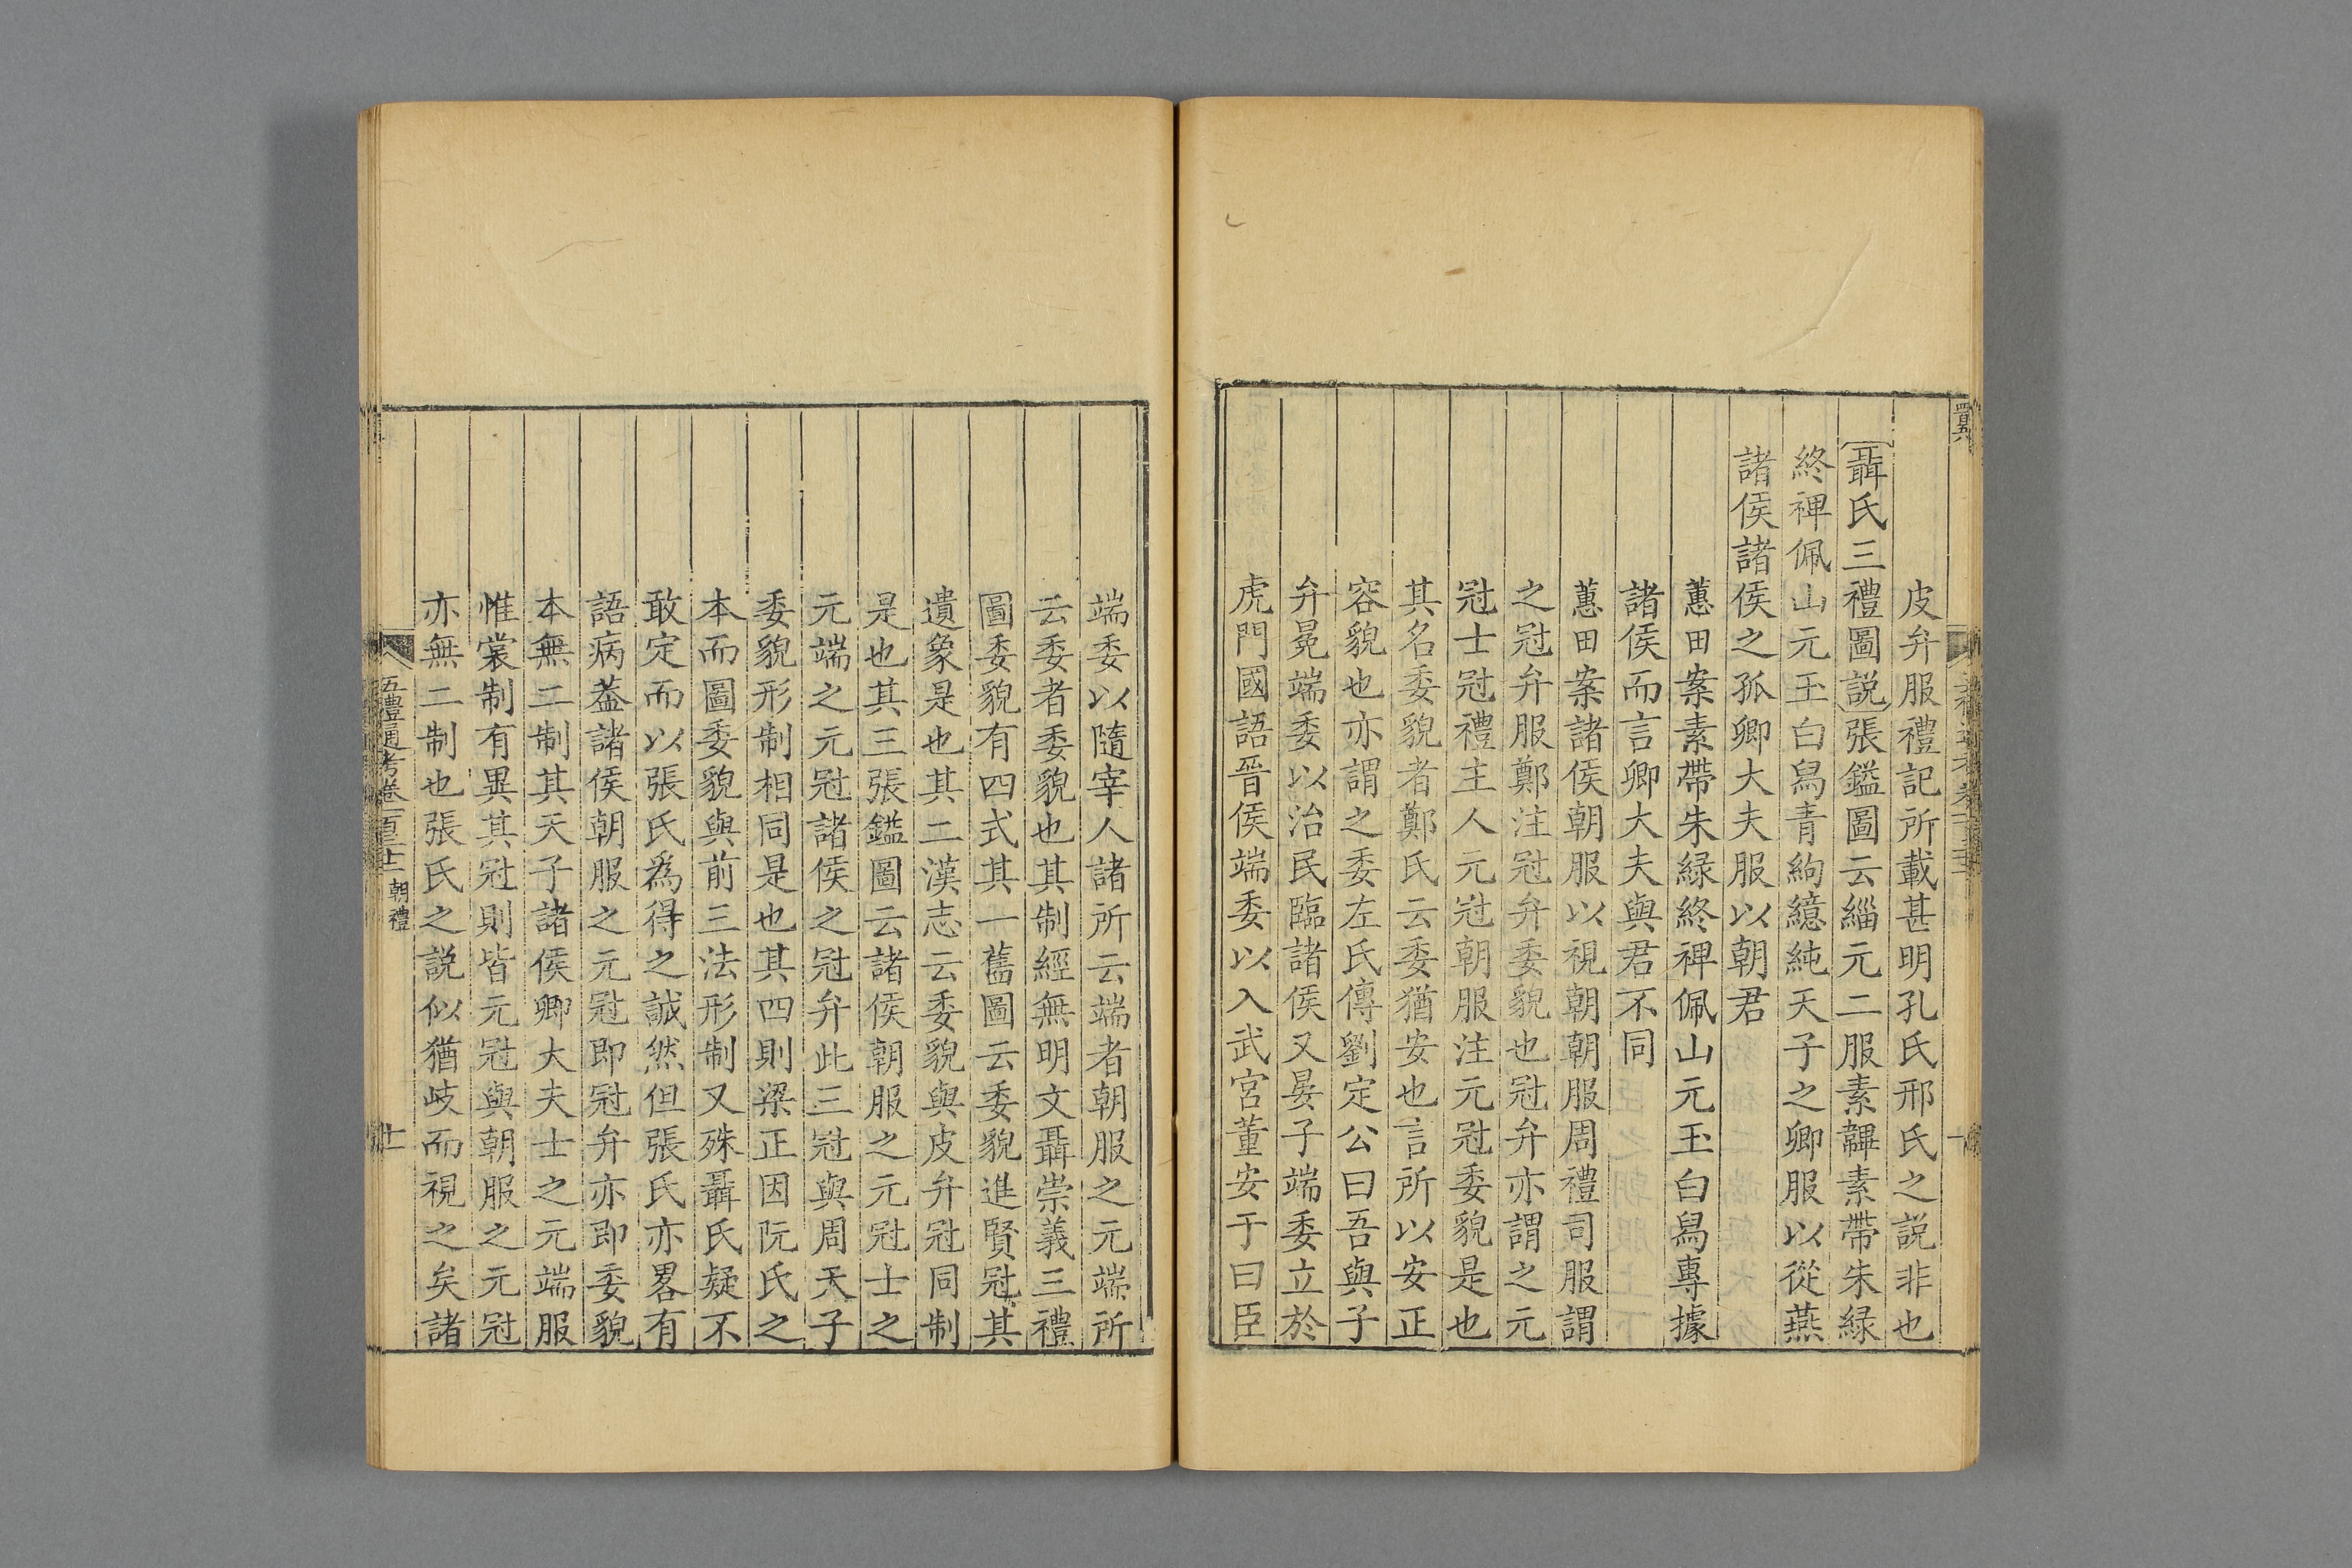 皮弁服禮記所載甚明孔氏邢氏之説非也
聶氏三禮圖説張鎰圖云緇元二服素韠素帶朱緑
終裨佩山元玉白舄青絇繶純天子之卿服以從燕
諸侯諸侯之孤卿大夫服以朝君
蕙田案素帶朱緑終裨佩山元玉白舄專據
諸侯而言卿大夫與君不同
蕙田案諸侯朝服以視朝朝服周禮司服謂
之冠弁服鄭注冠弁委貌也冠弁亦謂之元
冠士冠禮主人元冠朝服注元冠委貌是也
其名委貌者鄭氏云委猶安也言所以安正
容貌也亦謂之委左氏傳劉定公曰吾與子
弁冕端委以治民臨諸侯又晏子端委立於
虎門國語晉侯端委以入武宮董安于曰臣
端委以隨宰人諸所云端者朝服之元端所
云委者委貌也其制經無明文聶崇義三禮
圖委貌有四式其一舊圖云委貌進賢冠其
遺象是也其二漢志云委貌與皮弁冠同制
是也其三張鎰圖云諸侯朝服之元冠士之
元端之元冠諸侯之冠弁此三冠與周天子
委貌形制相同是也其四則梁正因阮氏之
本而圖委貌與前三法形制又殊聶氏疑不
敢定而以張氏為得之誠然但張氏亦畧有
語病葢諸侯朝服之元冠即冠弁亦即委貌
本無二制其天子諸侯卿大夫士之元端服
惟裳制有異其冠則皆元冠與朝服之元冠
亦無二制也張氏之説似猶歧而視之矣諸
五禮通考卷一百三十二 朝禮
十一